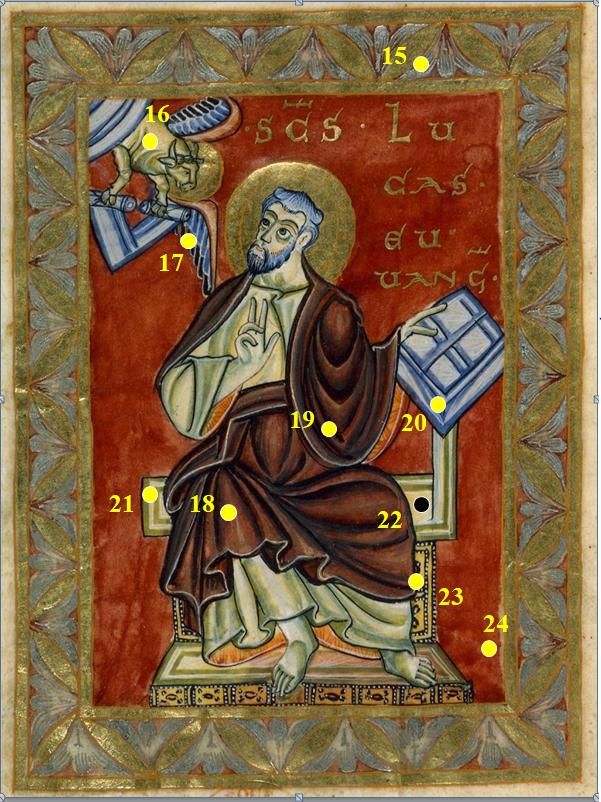 15
16
·SC̅S· LU
CAS·
EU·
UANG̅·
17
19
20
21
18
22
23
24